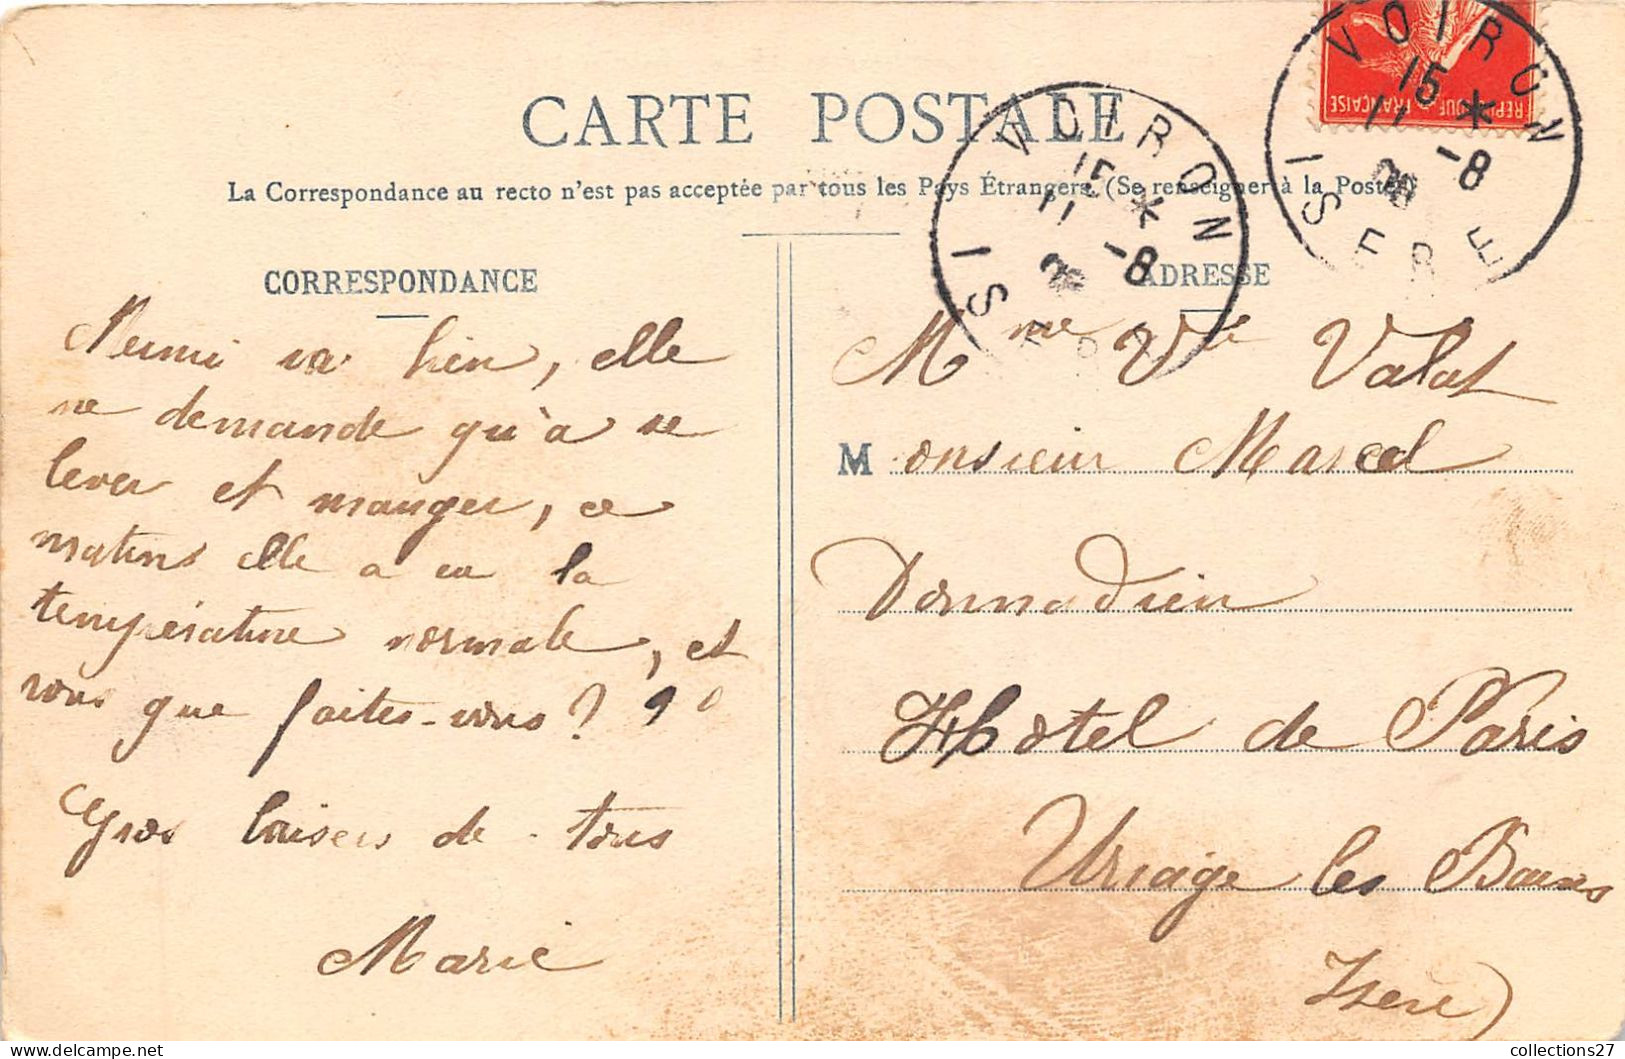 CARTE POSTALE
La Correspondance au recto n'est pas acceptée par tous les Pays Étrangers. (Se renseigner à la Poste)
VOIRON
15 *
11 -8
ISERE
VOIRON
15 *
11 -8
ISERE
REPUBLIQUE FRANÇAISE
CORRESPONDANCE
va bien, elle
ne demande qu'à se
lever et manger, ce
matins elle a eu la
température normale, et
vous que faites-vous?
Gros baisers de tous
Marie
ADRESSE
Mme Vve Valat
Monsieur Marcel
Donnadieu
Hôtel de Paris
Uriage les Bains
Isère)
collections27